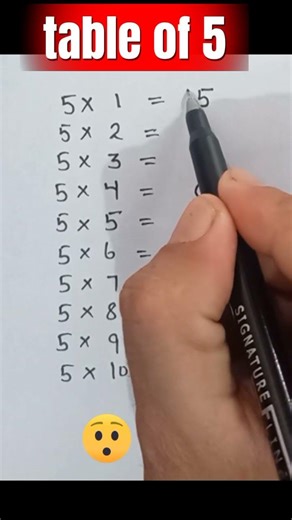 table of 5
5 × 1 = 5
5 × 2 =
5 × 3 =
5 × 4 =
5 × 5 =
5 × 6 =
5 × 7
5 × 8
5 × 9
5 × 10
SIGNATURE